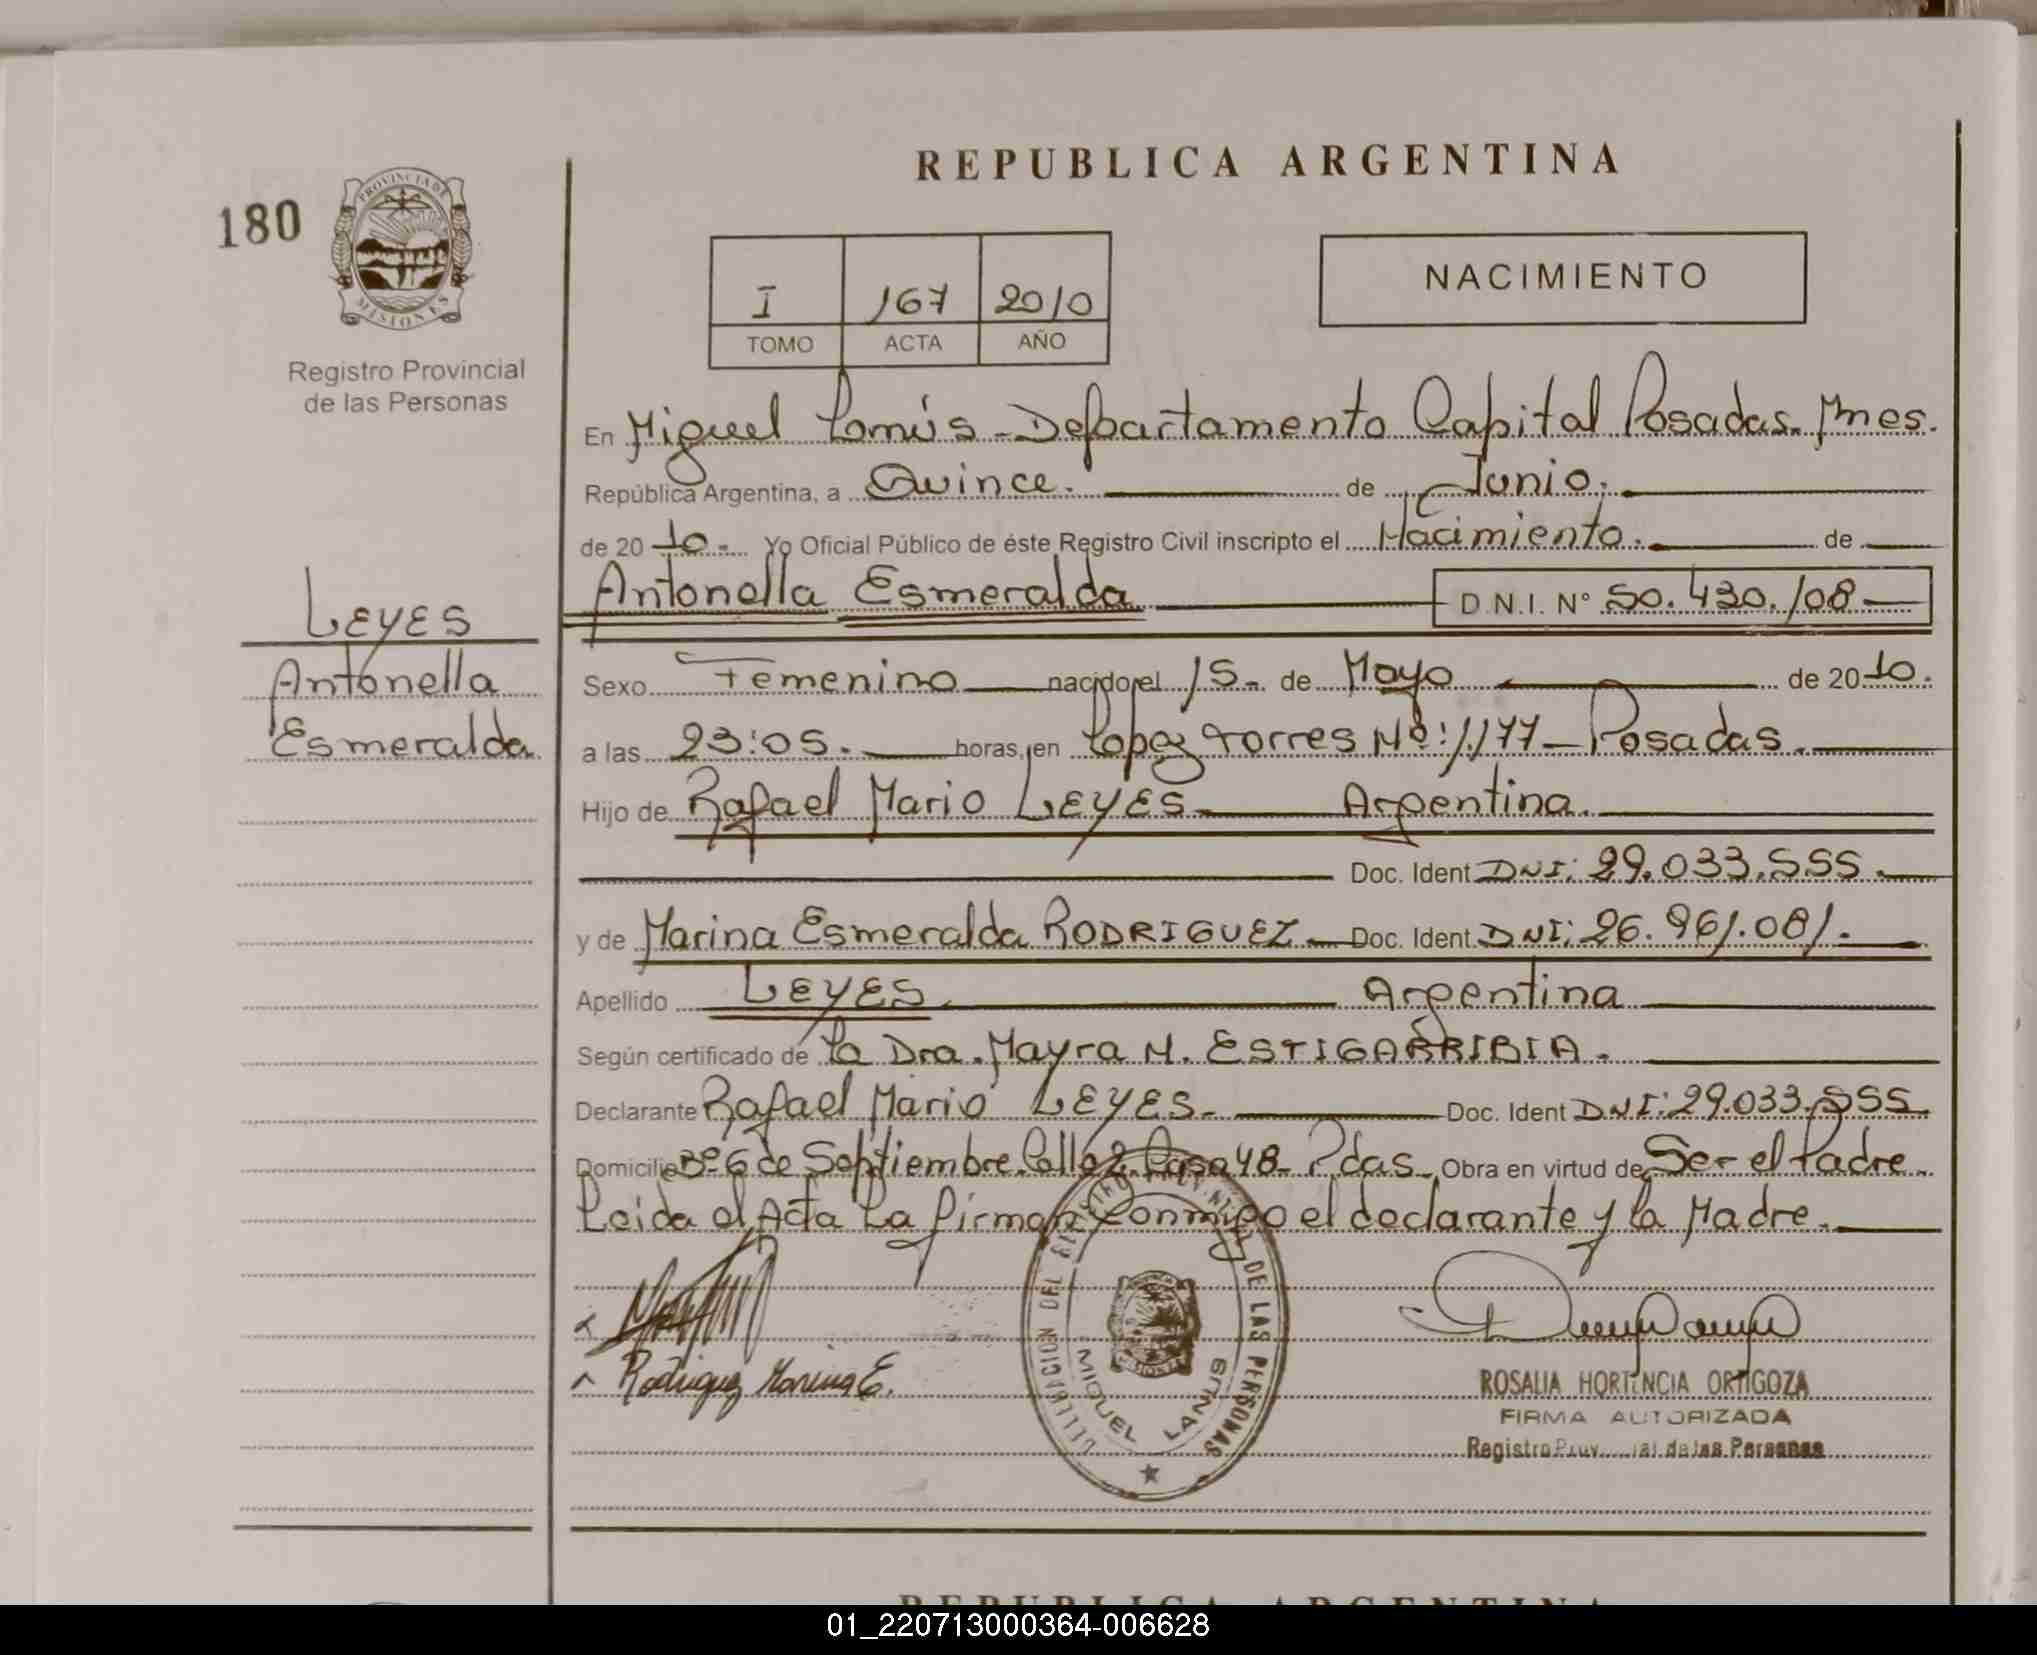 REPUBLICA ARGENTINA
180
PROVINCIA DE
MISIONES
Registro Provincial
de las Personas
I 167 2010
TOMO ACTA AÑO
NACIMIENTO
En Miguel Lanús - Departamento Capital Posadas. Mnes.
República Argentina, a Quince. de Junio.
de 2010. Yo Oficial Público de éste Registro Civil inscripto el Nacimiento. de
Antonella Esmeralda D.N.I. N° 50.430.108
LEYES
Antonella
Esmeralda
Sexo Femenino nacido el 15 de Mayo de 2010.
a las 23:05. horas, en Lopez Torres Nº: 1177 - Posadas.
Hijo de Rafael Mario LEYES Argentina.
Doc. Ident DNI: 29.033.555.
y de Marina Esmeralda RODRIGUEZ Doc. Ident. DNI: 26.961.081.
Apellido LEYES. Argentina
Según certificado de La Dra. Mayra N. ESTIGARRIBIA.
Declarante Rafael Mario LEYES. Doc. Ident DNI: 29.033.555
Domicilio Bº 6 de Septiembre. Calle 2. Casa 48. Pdas. Obra en virtud de Ser el Padre.
Leida el Acta La firman Conmigo el declarante y la Madre.
Rodriguez Marina E.
DELEGACION DEL REGISTRO PROVINCIAL DE LAS PERSONAS
MISIONES
MIGUEL LANUS
ROSALIA HORTENCIA ORTIGOZA
FIRMA AUTORIZADA
Registro Provincial de las Personas
REPUBLICA ARGENTINA
01_220713000364-006628